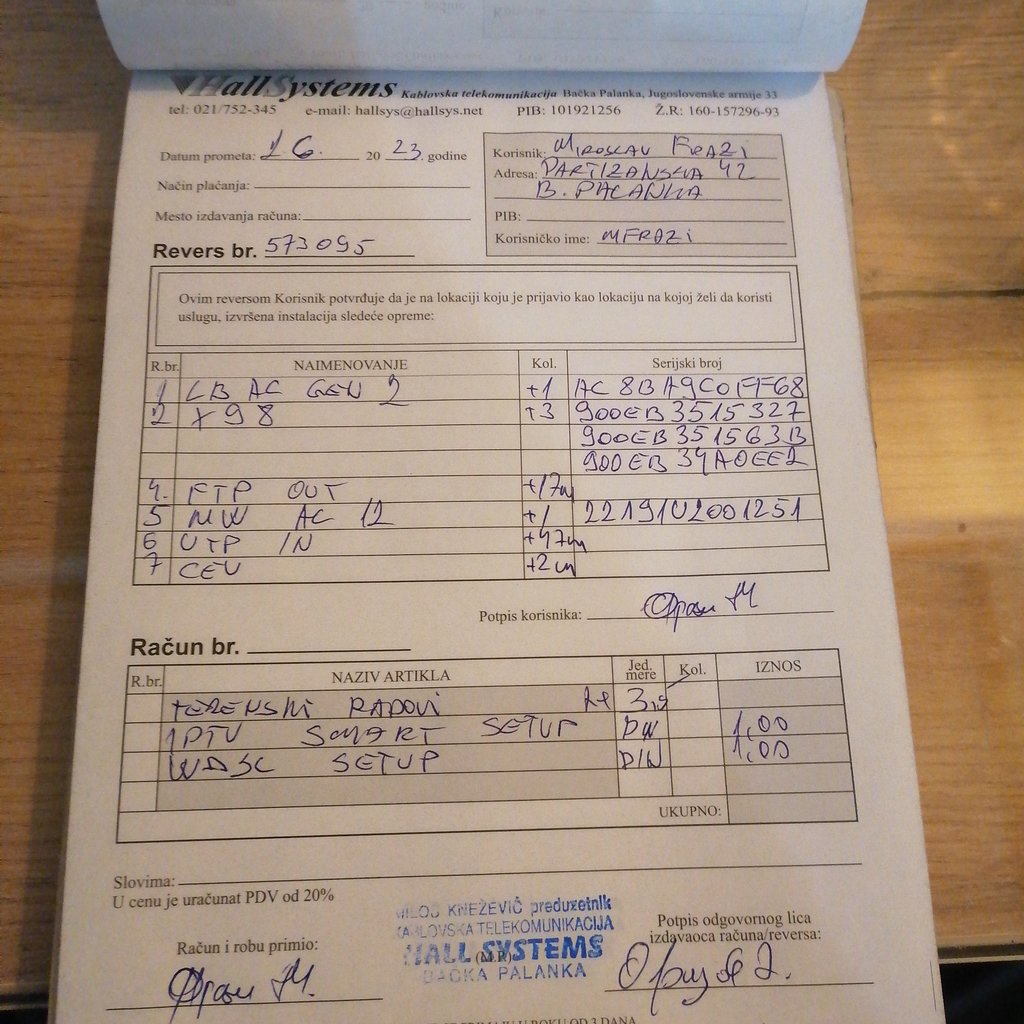 HallSystems Kablovska telekomunikacija Bačka Palanka, Jugoslovenske armije 33
tel: 021/752-345 e-mail: hallsys@hallsys.net PIB: 101921256 Ž.R: 160-157296-93
Datum prometa: 16. 20 23. godine
Način plaćanja:
Mesto izdavanja računa:
Revers br. 573095
Korisnik: MIROSLAV FRAZI
Adresa: PARTIZANSKA 42
B. PALANKA
PIB:
Korisničko ime: MFRAZI
Ovim reversom Korisnik potvrđuje da je na lokaciji koju je prijavio kao lokaciju na kojoj želi da koristi
uslugu, izvršena instalacija sledeće opreme:
R.br. NAIMENOVANJE Kol. Serijski broj
1 LB AC GEN 2 +1 AC8BA9C0FF68
2 X98 +3 900EB3515327
900EB351563B
900EB34A0EE2
4. FTP OUT +17m
5 MW AC 12 +1 22191U2001251
6 UTP IN +47m
7 CEV +2m
Potpis korisnika:
Račun br.
R.br. NAZIV ARTIKLA Jed. mere Kol. IZNOS
TERENSKI RADOVI
IPTV SMART SETUP 1,00
SETUP 1,00
UKUPNO:
Slovima:
U cenu je uračunat PDV od 20%
MILOŠ KNEŽEVIĆ preduzetnik
KABLOVSKA TELEKOMUNIKACIJA
HALL SYSTEMS
(M.P.)
BAČKA PALANKA
Račun i robu primio:
Potpis odgovornog lica
izdavaoca računa/reversa:
U ROKU OD 3 DANA